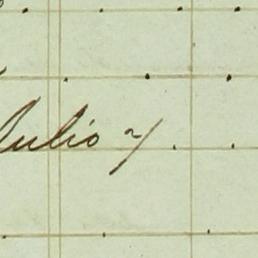 Julio 7